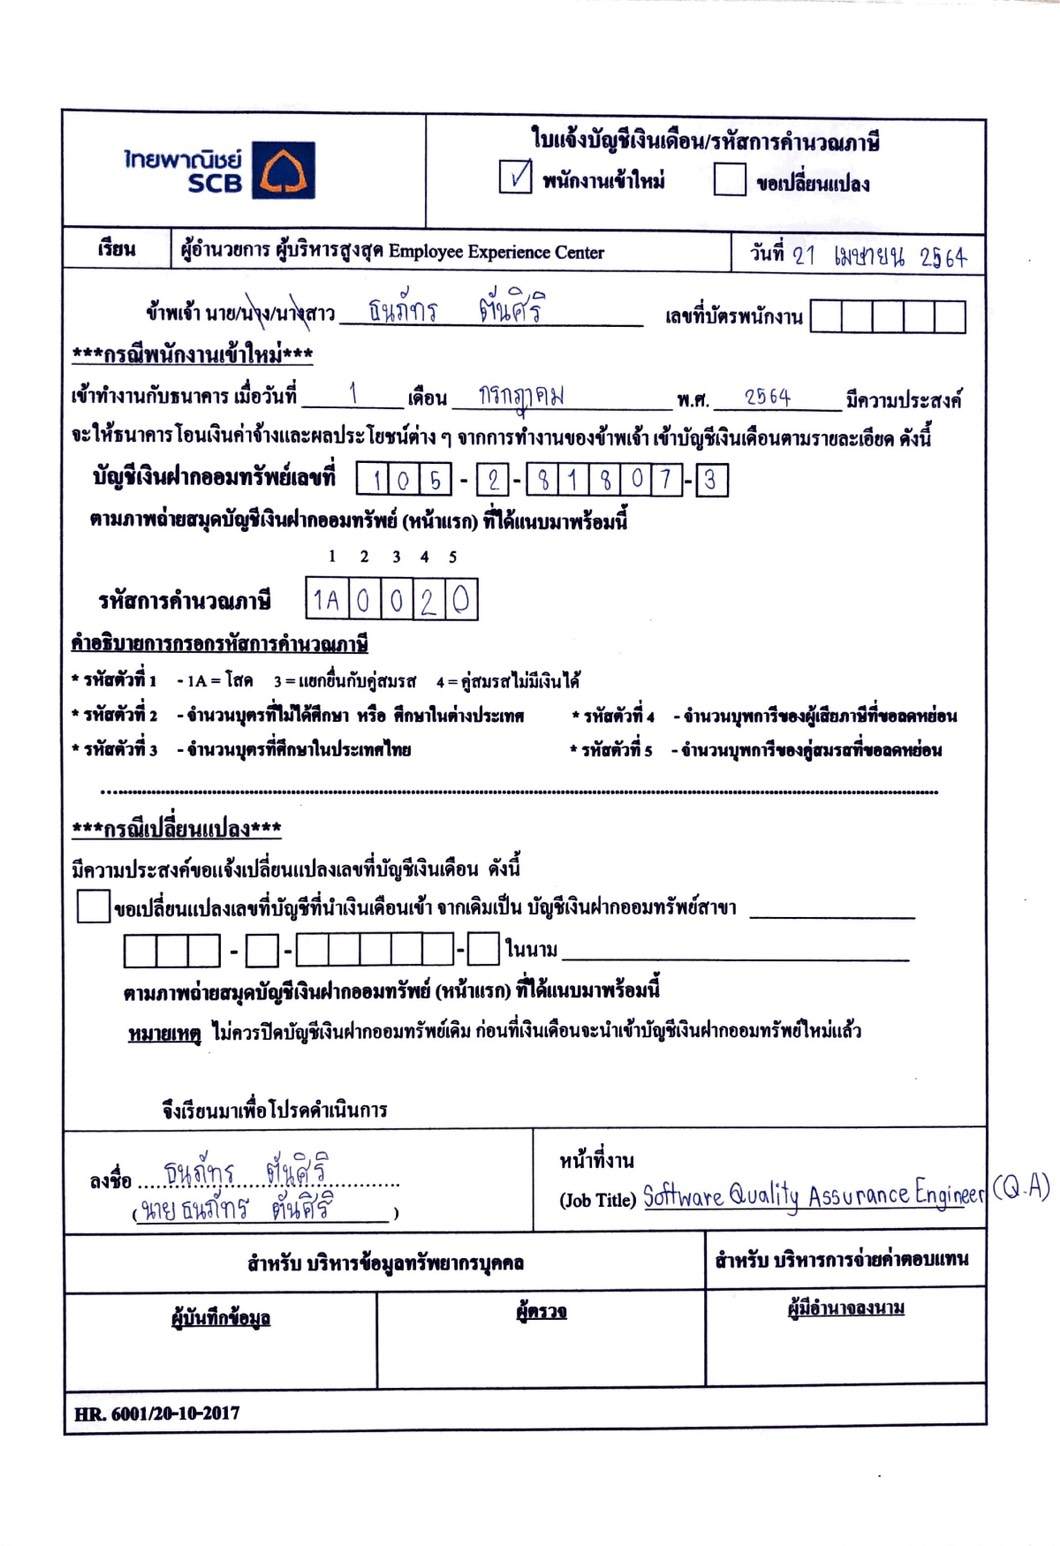 ไทยพาณิชย์
SCB
ใบแจ้งบัญชีเงินเดือน/รหัสการคำนวณภาษี
✓ พนักงานเข้าใหม่ ขอเปลี่ยนแปลง
เรียน ผู้อำนวยการ ผู้บริหารสูงสุด Employee Experience Center วันที่ 21 เมษายน 2564
ข้าพเจ้า นาย/นาง/นางสาว ธนภัทร ตันศิริ เลขที่บัตรพนักงาน
***กรณีพนักงานเข้าใหม่***
เข้าทำงานกับธนาคาร เมื่อวันที่ 1 เดือน กรกฎาคม พ.ศ. 2564 มีความประสงค์
จะให้ธนาคารโอนเงินค่าจ้างและผลประโยชน์ต่าง ๆ จากการทำงานของข้าพเจ้า เข้าบัญชีเงินเดือนตามรายละเอียด ดังนี้
บัญชีเงินฝากออมทรัพย์เลขที่ 105-2-81807-3
ตามภาพถ่ายสมุดบัญชีเงินฝากออมทรัพย์ (หน้าแรก) ที่ได้แนบมาพร้อมนี้
1 2 3 4 5
รหัสการคำนวณภาษี 1A 0 0 2 0
คำอธิบายการกรอกรหัสการคำนวณภาษี
* รหัสตัวที่ 1 - 1A = โสด 3 = แยกยื่นกับคู่สมรส 4 = คู่สมรสไม่มีเงินได้
* รหัสตัวที่ 2 - จำนวนบุตรที่ไม่ได้ศึกษา หรือ ศึกษาในต่างประเทศ * รหัสตัวที่ 4 - จำนวนบุพการีของผู้เสียภาษีที่ขอลดหย่อน
* รหัสตัวที่ 3 - จำนวนบุตรที่ศึกษาในประเทศไทย * รหัสตัวที่ 5 - จำนวนบุพการีของคู่สมรสที่ขอลดหย่อน
***กรณีเปลี่ยนแปลง***
มีความประสงค์ขอแจ้งเปลี่ยนแปลงเลขที่บัญชีเงินเดือน ดังนี้
ขอเปลี่ยนแปลงเลขที่บัญชีที่นำเงินเดือนเข้า จากเดิมเป็น บัญชีเงินฝากออมทรัพย์สาขา
- - - ในนาม
ตามภาพถ่ายสมุดบัญชีเงินฝากออมทรัพย์ (หน้าแรก) ที่ได้แนบมาพร้อมนี้
หมายเหตุ ไม่ควรปิดบัญชีเงินฝากออมทรัพย์เดิม ก่อนที่เงินเดือนจะนำเข้าบัญชีเงินฝากออมทรัพย์ใหม่แล้ว
จึงเรียนมาเพื่อโปรดดำเนินการ
ลงชื่อ ธนภัทร ตันศิริ
(นาย ธนภัทร ตันศิริ)
หน้าที่งาน
(Job Title) Software Quality Assurance Engineer (Q.A)
สำหรับ บริหารข้อมูลทรัพยากรบุคคล สำหรับ บริหารการจ่ายค่าตอบแทน
ผู้บันทึกข้อมูล ผู้ตรวจ ผู้มีอำนาจลงนาม
HR. 6001/20-10-2017